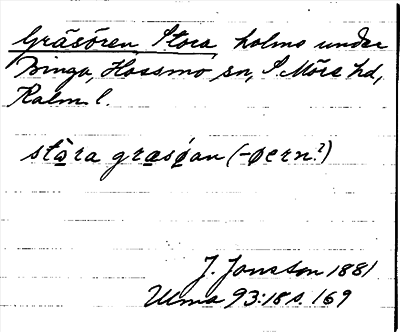 Gräsören Stora, holme under
Binga, Hossmo sn, S. Möre hd,
Kalm. l.
stòra grasøan (-øern?)
J. Jonsson 1881
Ulma 93:18 s. 169